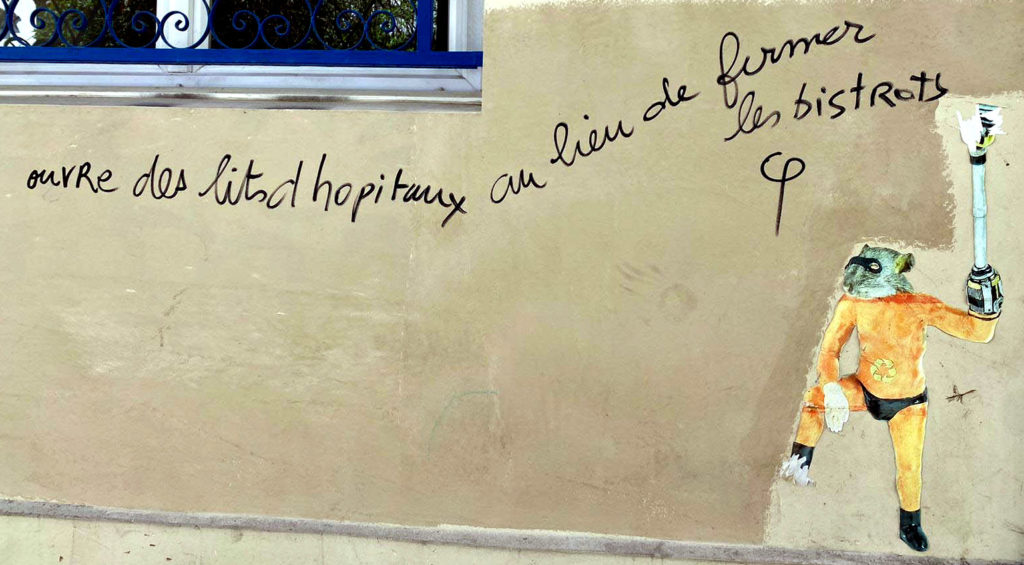 ouvRe des lits d hopitaux au lieu de fermer
les bistRots
φ